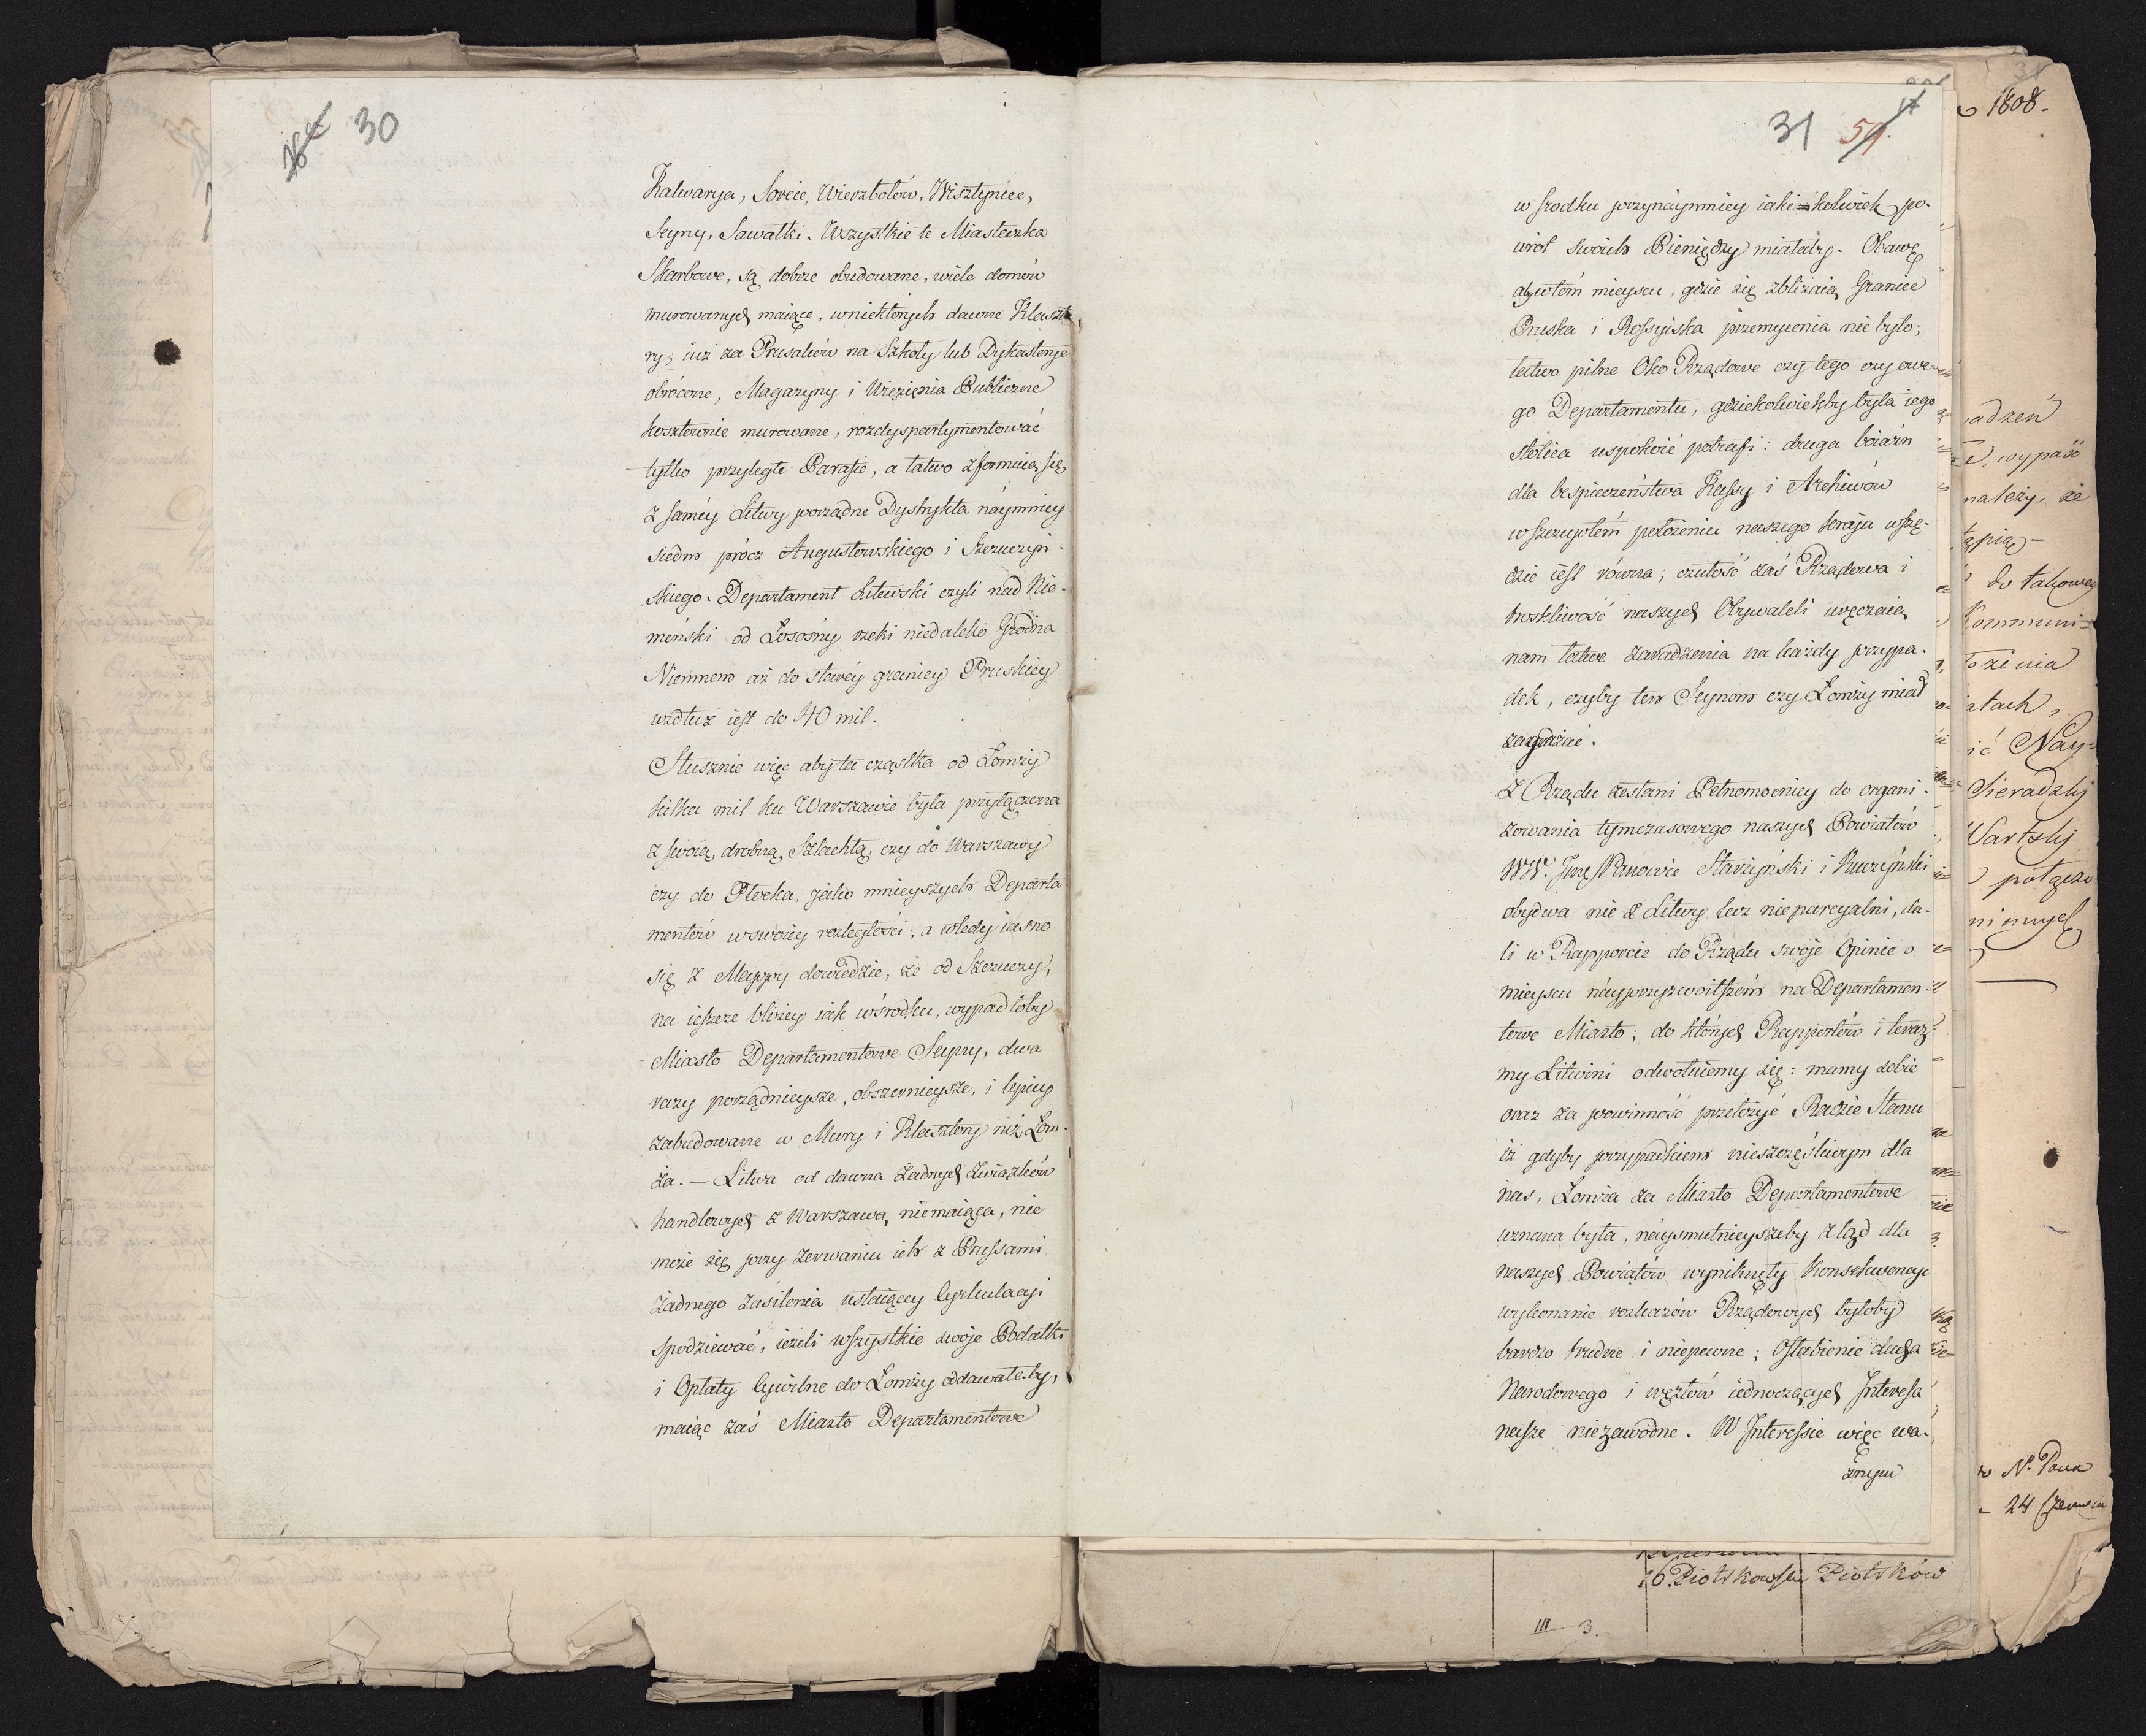 30
Kalwarya, Sereie, Wierzbołów, Wisztyniec,
Seyny, Suwałki. Wszystkie te Miasteczka
Skarbowe, są dobrze obudowane, wiele domów
murowanych maiące, wniektórych dawne Klaszto
ry, iuż za Prusaków na Szkoły lub Dykasterye
obrócone, Magazyny i Więzięnia Publiczne
kosztownie murowane, rozdyspartymentować
tylko przyległe Parafie, a łatwo zformuią się
z saméy Litwy porządne Dystrykta náymniey
siedm prócz Augustowskiego i Szczuczyń-
skiego. Departament Litewski czyli nad Nie-
meński od Łosośny rzeki niedaleko Grodna
Niemnem aż do staréy graniey Pruskiey
wzdłuż iest do 40 mil.
Słusznie więc aby ta cząstka od Łomży
kilka mil ku Warszawie była przyłączona
z swoią drobną Szlachtą, czy do Warszawy
czy do Płocka, jako mnieyszych Departa
mentów wswoiey rozległości; a wtedy iasno
się z Mappy dowiedzie, że od Szczuczy,
na ieszcze bliżey iak wśrodku, wypadłoby
Miasto Departamentowe Seyny, dwa
razy porządnieysze, obszernieysze, i lepiey
zabudowane w Mury i Klasztory niż Łom-
ża. — Litwa od dawna żadnych Związków
handlowych z Warszawą niemaiąca, nie
może się przy zerwaniu ich z Prussami
żadnego zasilenia ustaiącey Cyrkulacyi
spodziewać, ieżeli wszystkie swoje Podatki
i Opłaty Cywilne do Łomży oddawałaby,
maiąc zaś Miasto Departamentowe
31 59.
w srodku przynáymniey iaki=kolwiek po-
wrót swoich Pieniędzy miałaby. Obawę
aby wtém mieyscu, gdzie się zbliżaią Granice
Pruska i Rossyiska przemycenia nie było;
łatwo pilne Oko Rządowe czy tego czy owe-
go Departamentu, gdziekolwiekby była iego
stolica uspokoić potrafi: druga boiaźń
dla bespieczeństwa Kassy i Archiwów
w szczupłém położeniu naszego kraju wszę-
dzie iest równa; czułość zaś Rządowa i
troskliwość naszych Obywateli uręczaią
nam łatwe zaradzenia na każdy przypa-
dek, czyby ten Seynom czy Łomży miał
zagrażać.
Z Rządu zesłani Pełnomocnicy do organi-
zowania tymczasowego naszych Powiatów
WW. Jmć Panowie Starzynski i Kuczyński
obydwa nie z Litwy lecz nieparcyalni, da-
li w Rapporcie do Rządu swoje Opinie o
mieyscu náyprzyzwoitszém na Departamen-
towe Miasto; do których Rapportów i teraz
my Litwini odwołuiemy się: mamy sobie
oraz za powinność przełożyć Radzie Stanu
iż gdyby przypadkiem nieszczęśliwym dla
nas, Łomża za Miasto Departamentowe
uznana była, náysmutnieyszeby z tąd dla
naszych Powiatów wyniknęły Konsekwencye
wykonanie rozkazów Rządowych byłoby
bardzo trudne i niepewne; Osłabienie ducha
Narodowego i węzłów iednoczących Interesa
nasze niezawodne. W Interessie więc wa-
żnym
1808.
adzeń
wypaść
należy, że
tąpią
do takowey
Kommuni=
łożenia
atach
ić Nay=
Sieradzkiy
Wartskiy
połącze
N. Pana
24 Czerwca
16. Piotrkowski Piotrków
III 3.